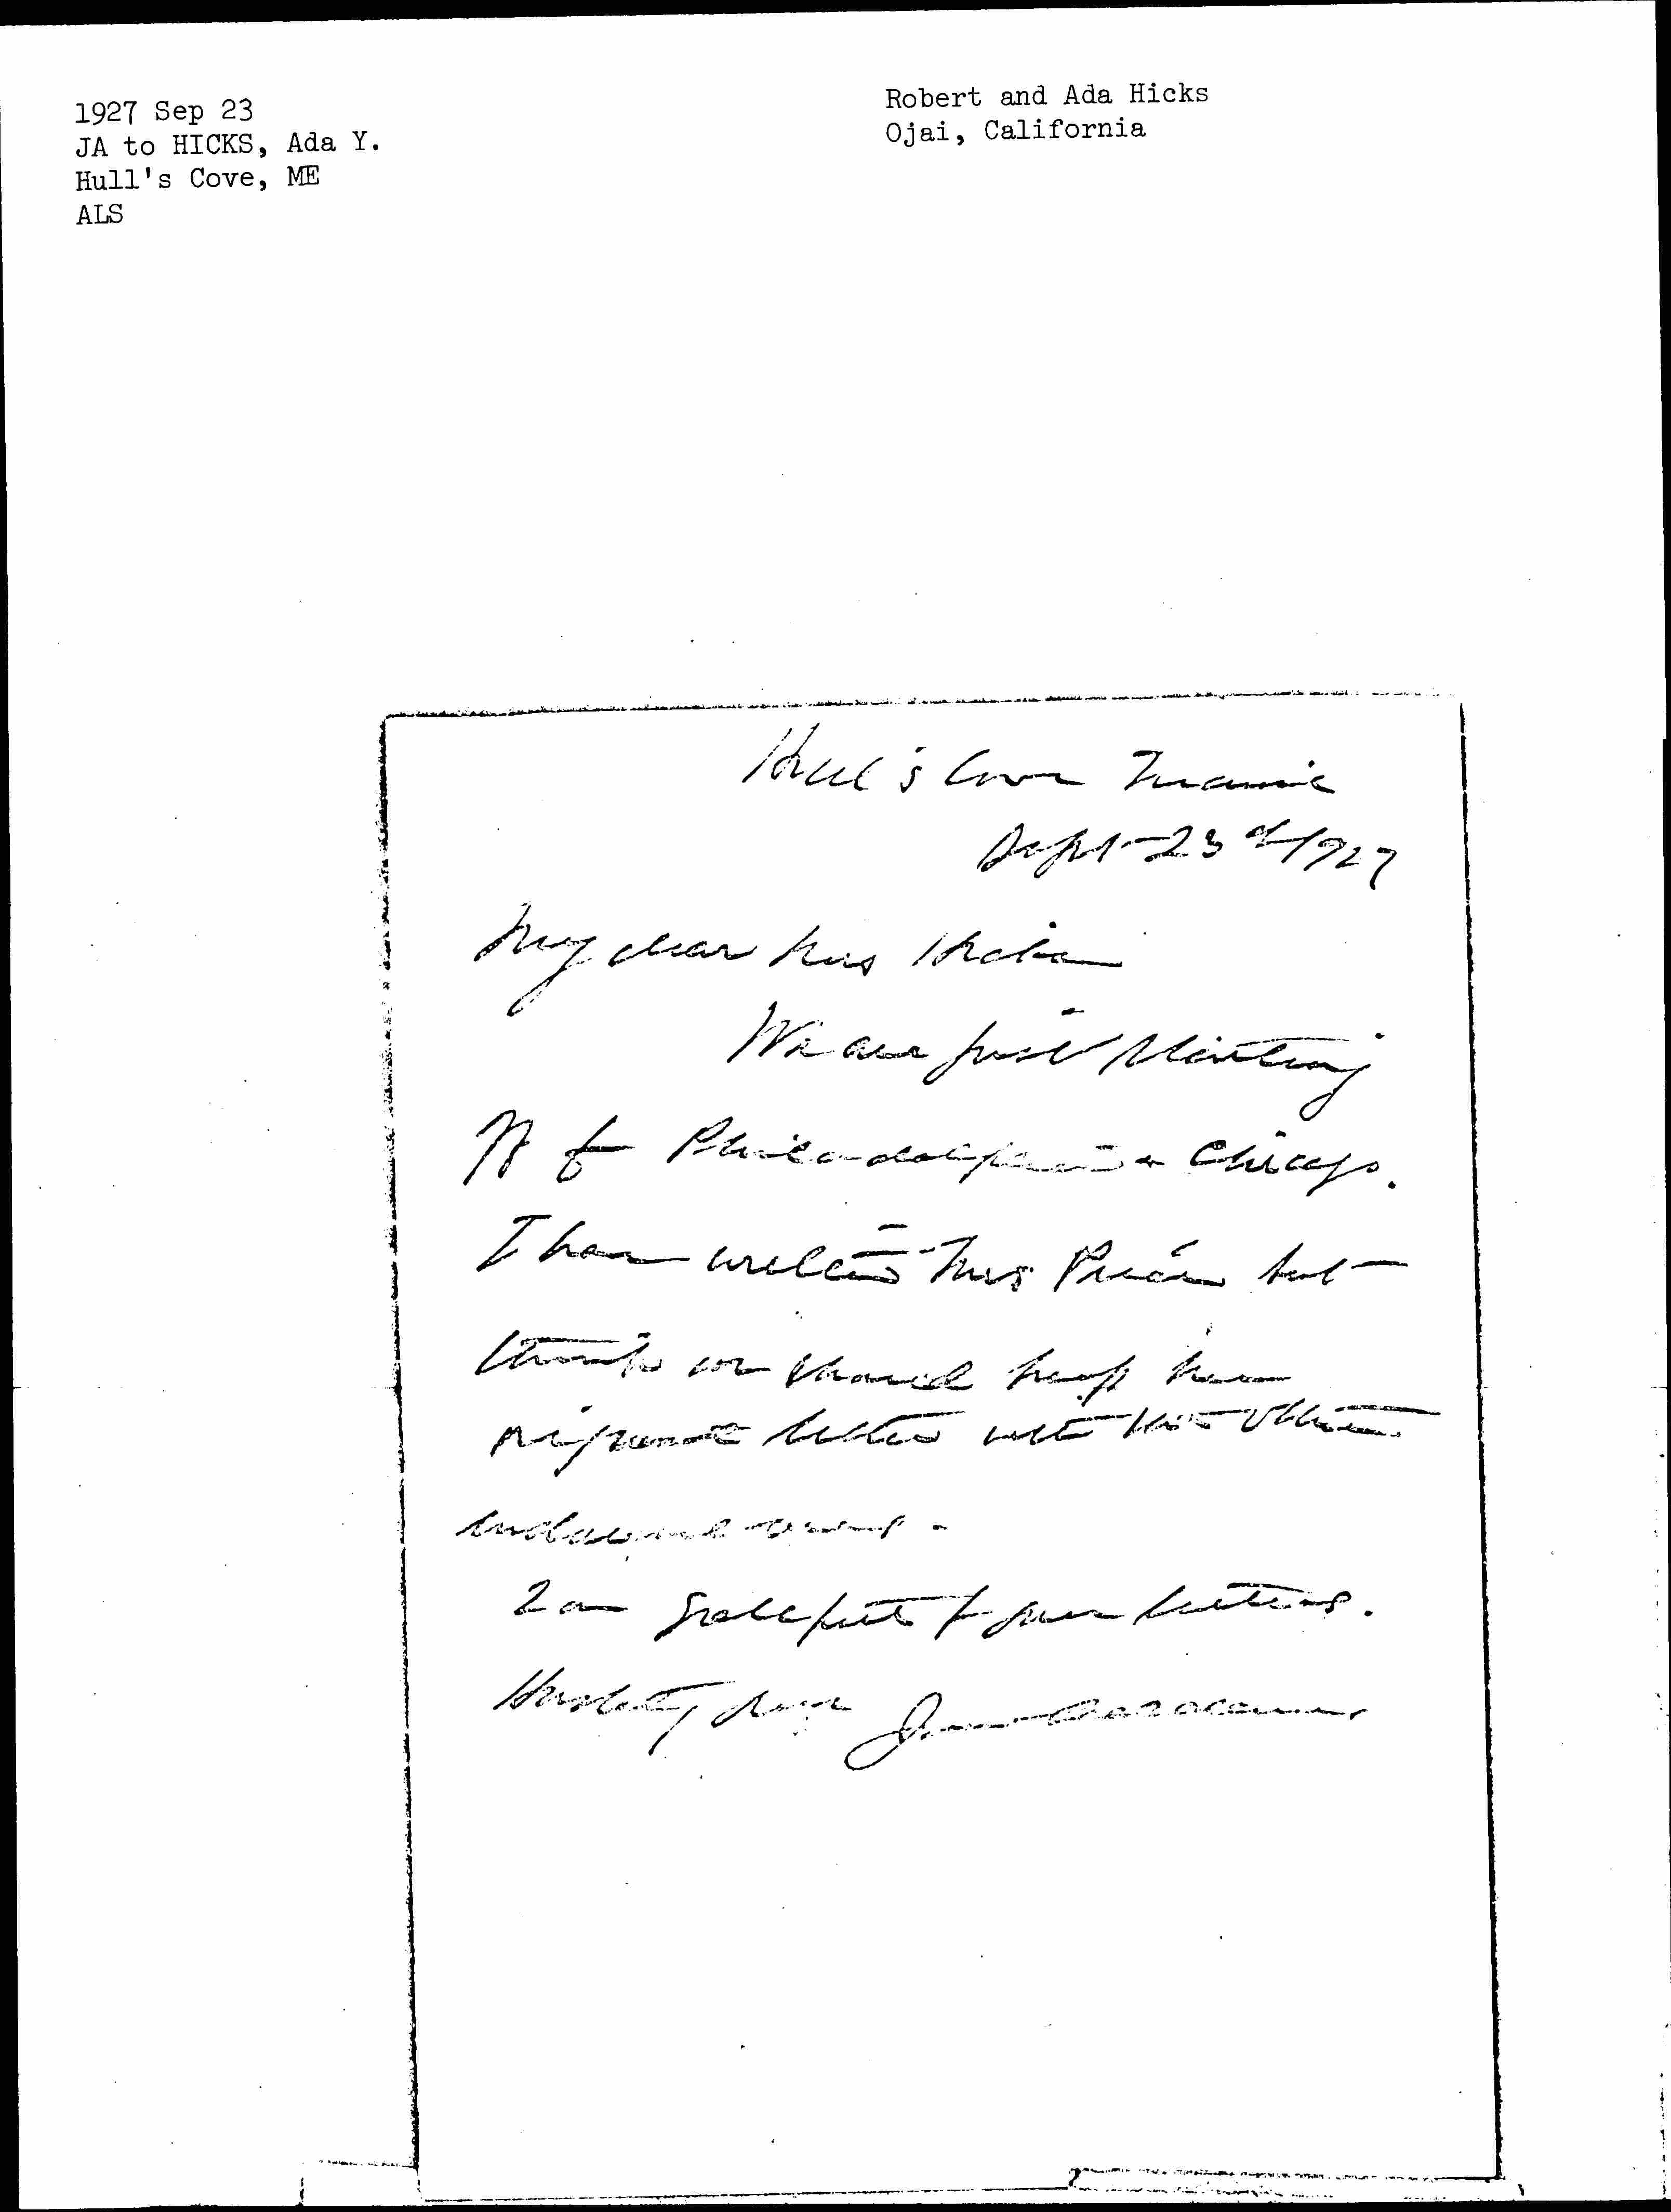 1927 Sep 23
JA to HICKS, Ada Y.
Hull's Cove, ME
ALS
Robert and Ada Hicks
Ojai, California
Hull's Cove Maine
Sept 23d 1927
My dear Mrs Hicks
We are just starting
off for Philadelphia & Chicago.
I have written Mrs but
think we should keep her
letter with the other
I am grateful for your letters.
Hastily yours Jane Addams